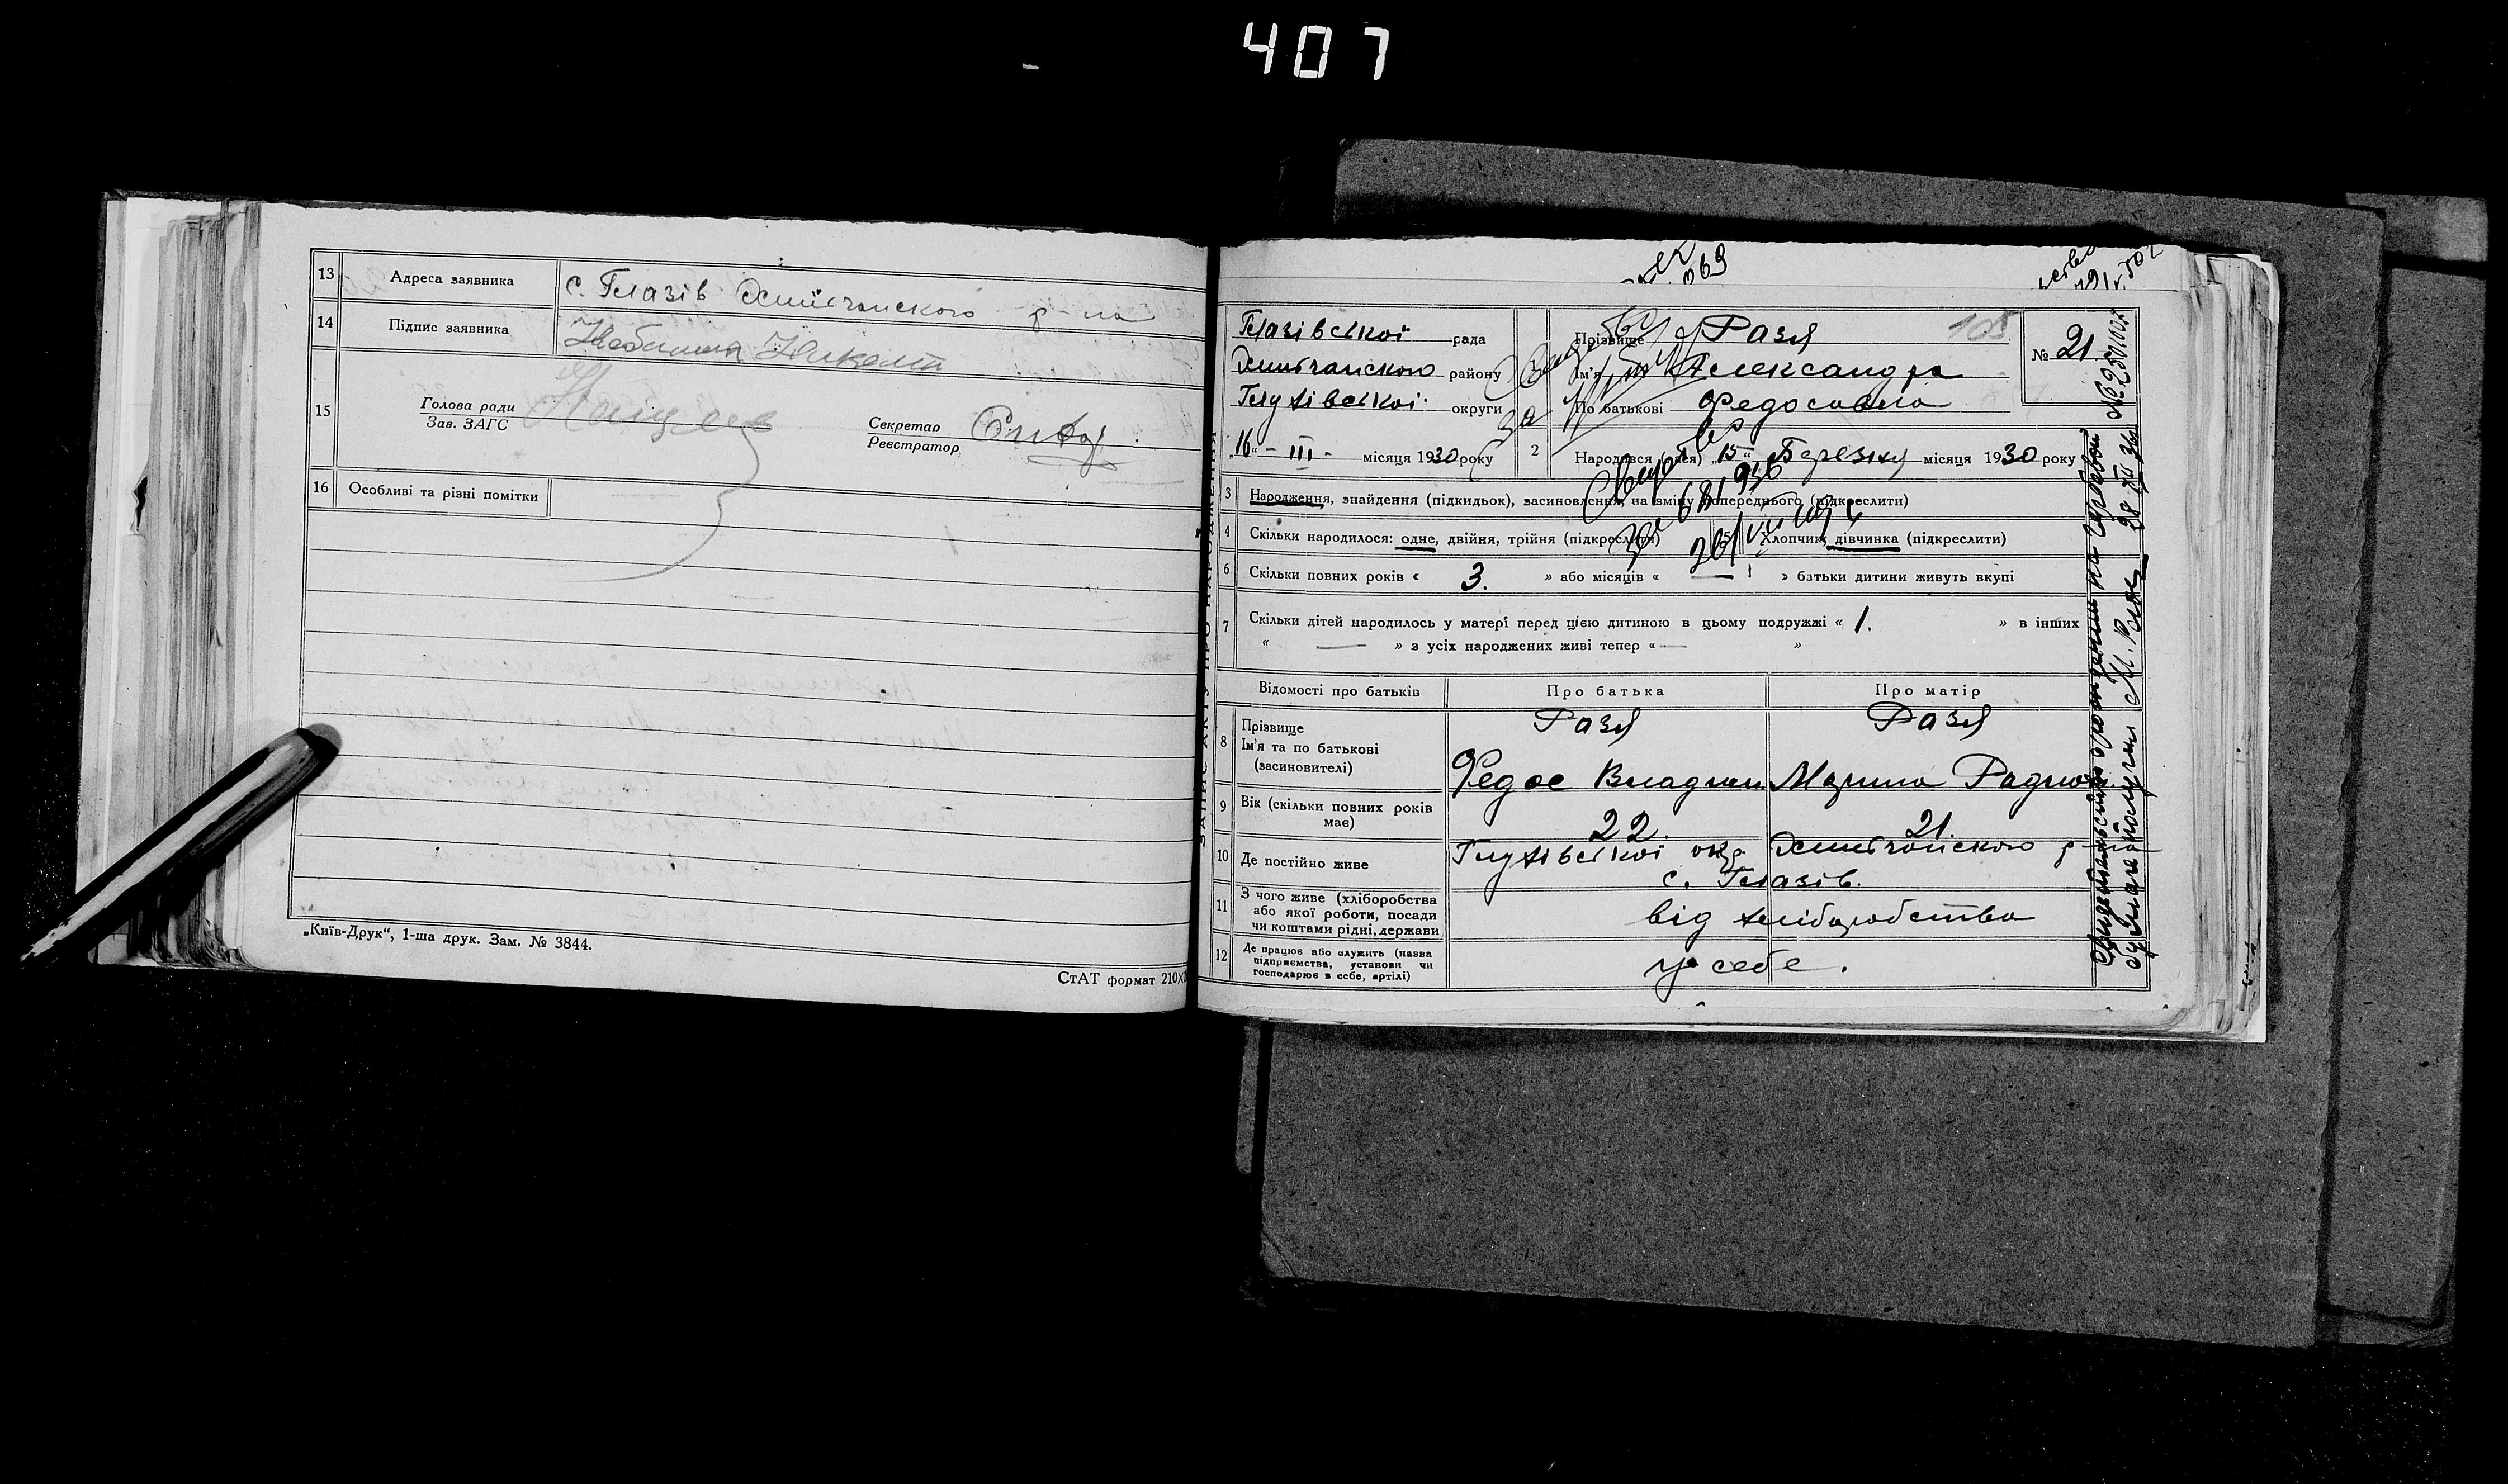 407
13 Адреса заявника с. Глазів Хильчанского р-на
14 Підпис заявника
15 Голова ради
Зав. ЗАГС
Секретар
Реєстратор
16 Особливі та різні помітки
„Київ-Друк“, 1-ша друк. Зам. № 3844.
СтАТ формат 210×
ЗАПИС АКТУ ПРО НАРОДЖЕННЯ
069
Глазівської рада
Хильчанского району
Глухівської округи
„16“ - III - місяця 1930 року
Прізвище Разя 105
Ім'я Александра
По батькові Федосовна
№ 21
2 Народився (лася) „15“ Березня місяця 1930 року
3 Народження, знайдення (підкидьок), засиновлення, на зміну попереднього (підкреслити)
4 Скільки народилося: одне, двійня, трійня (підкреслити) 5 Хлопчик, дівчинка (підкреслити)
6 Скільки повних років « 3. » або місяців « — » батьки дитини живуть вкупі
7 Скільки дітей народилось у матері перед цією дитиною в цьому подружжі « 1. » в інших
« — » з усіх народжених живі тепер « — »
Відомості про батьків Про батька Про матір
8 Прізвище
Ім'я та по батькові
(засиновителі)
Разя Разя
Федос Марина
9 Вік (скільки повних років має) 22. 21.
10 Де постійно живе Глухівської окр. Хильчанского р-на
с. Глазів.
11 З чого живе (хліборобства
або якої роботи, посади
чи коштами рідні, держави
від хліборобства
12 Де працює або служить (назва
підприємства, установи чи
господарює в себе, артілі)
у себе.